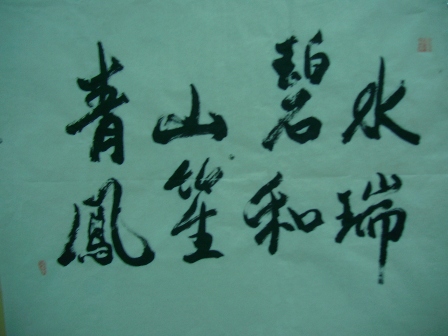 青山碧水
鳳笙和瑞